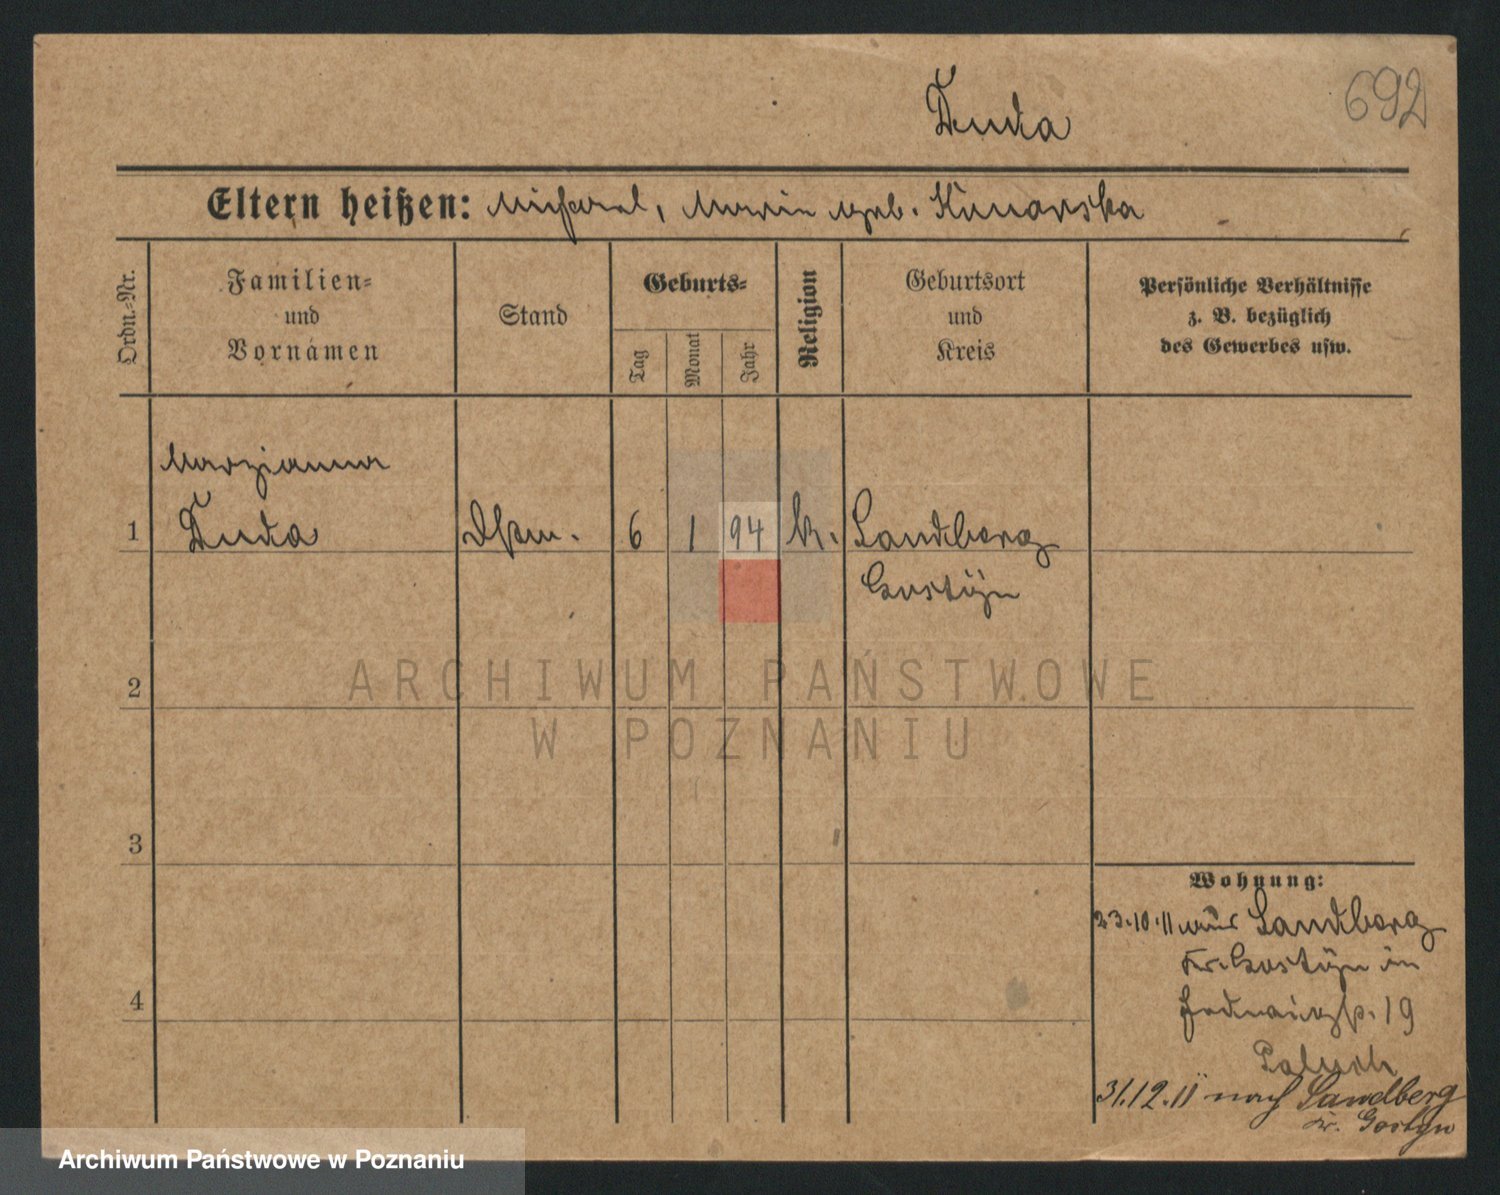 692
Duda
Eltern heißen: Michael, Marie geb. Konarska
Ordn.-Nr.
Familien-
und
Vornamen
Stand
Geburts-
Tag
Monat
Jahr
Religion
Geburtsort
und
Kreis
Persönliche Verhältnisse
z. B. bezüglich
des Gewerbes usw.
Marzianna
1 Duda Dstm. 6 1 94 k. Sandberg
Gostyn
2
3
4
Wohnung:
23.10.11 aus Sandberg
Kr. Gostyn in
19
Paluch
31.12.11 nach Sandberg
Kr. Gostyn
ARCHIWUM PAŃSTWOWE
W POZNANIU
Archiwum Państwowe w Poznaniu